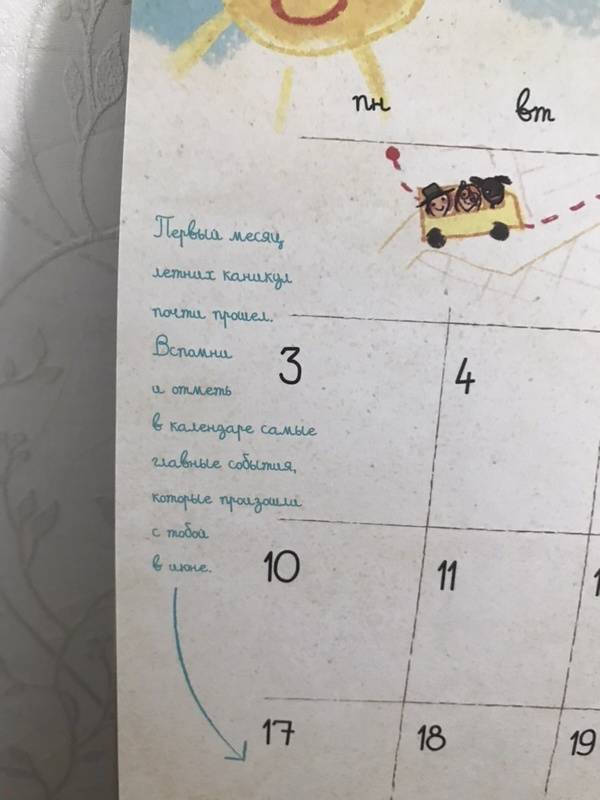 пн вт
Первый месяц
летних каникул
почти прошел.
Вспомни
и отметь
в календаре самые
главные события,
которые произошли
с тобой
в июне.
3 4
10 11
17 18 19